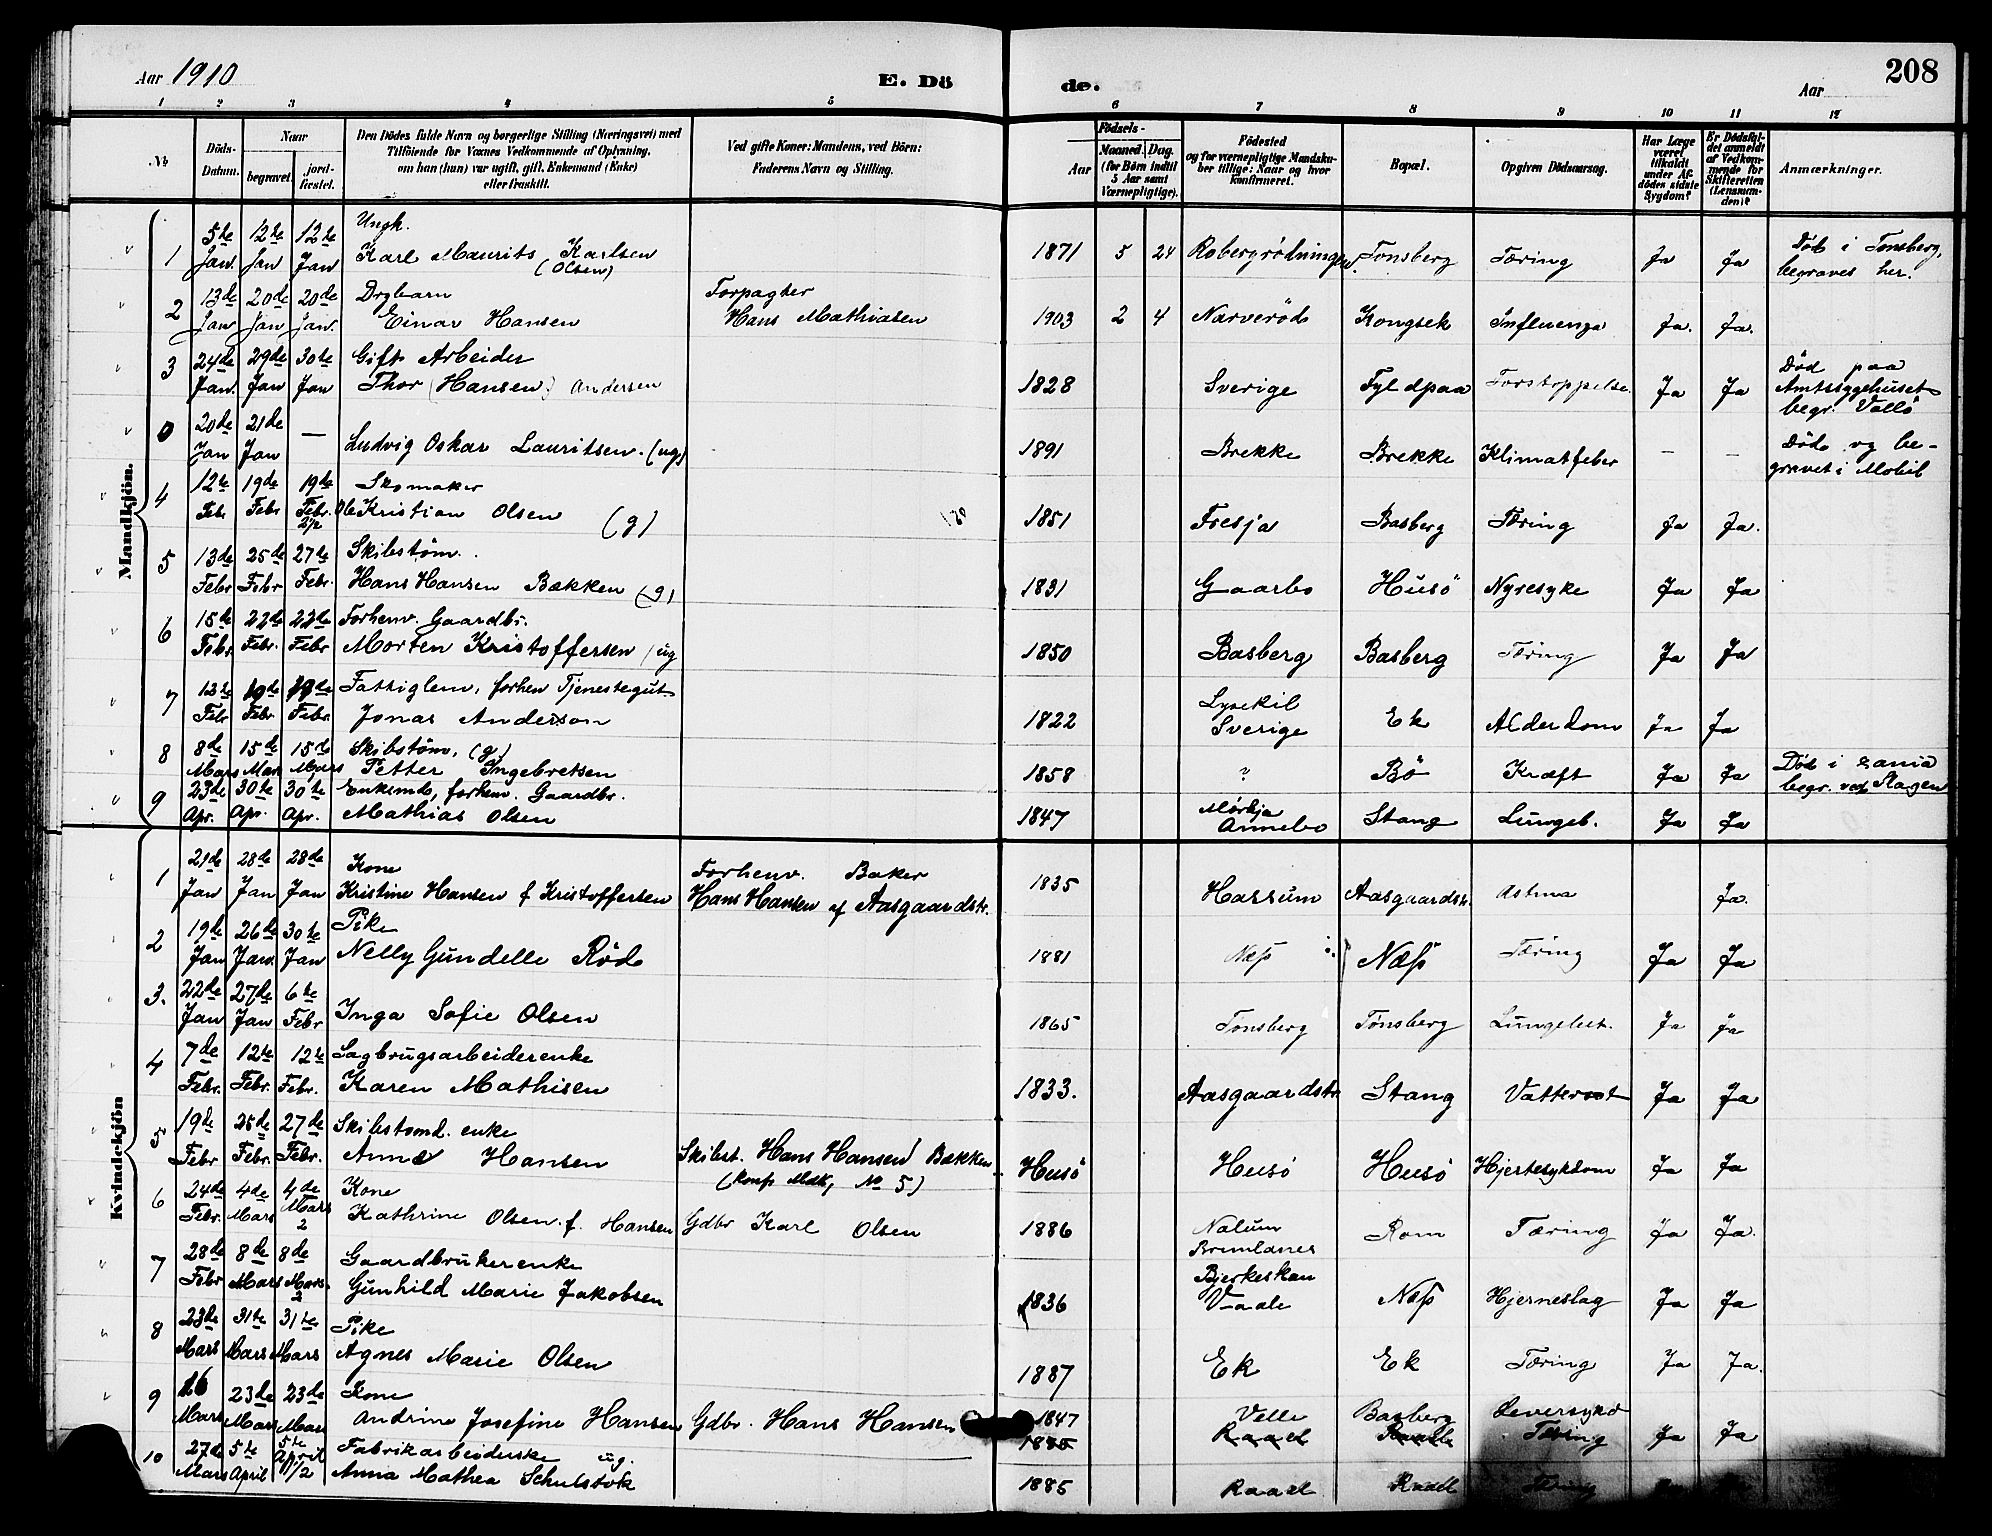 Aar 1910
E. Dö
de.
Aar
208
1 2 3 4 5 6 7 8 9 10 11 12
No
Döds-
Datum.
Naar
begravet.
jord-
fæstet.
Den Dödes fulde Navn og borgerlige Stilling (Næringsvei) med
Tilföiende for Voxnes Vedkommende af Oplysning,
om han (hun) var ugift, gift, Enkemand (Enke)
eller fraskilt.
Ved gifte Koner: Mandens, ved Börn:
Faderens Navn og Stilling.
Födsels-
Aar
Maaned. Dag.
(for Börn indtil
5 Aar samt
Værnepligtige).
Födested
og for værnepligtige Mandsku-
ber tillige: Naar og hvor
konfirmeret.
Bopæl.
Opgiven Dödsaarsag.
Har Læge
været
tilkaldt
under Af-
dödes sidste
Sygdom?
Er Dödsfal-
det anmeldt
af Vedkom-
mende for
Skifteretten
(Lensman-
den)?
Anmærkninger.
Mandkjön.
1 5te Jan. 12te Jan 12te Jan Ungk.
Karl Maurits Karlsen (Olsen) 1871 5 24 Robergrødningen Tønsberg Tæring Ja Ja Død i Tønsberg, begraves her.
2 13de Jan 20de Jan 20de Jan. Drgbarn Forpagter
Einar Hansen Hans Mathiasen 1903 2 4 Narverød Kongsek Influenza Ja. Ja.
3 24de Jan. 29de Jan 30te Jan Gift Arbeider
Thor (Hansen) Andersen 1828 Sverige Fyldpaa Forstoppelse. Ja Ja Død paa Amtssygehuset begr. Vallö
0 20de Jan 21de Jan — Ludvig Oskar Lauritsen. (ug) 1891 Brekke Brekke Klimatfeber — — Død og be-
gravet i Mobil
4 12te Febr 19de Febr 19de Febr. 2/2 Skomaker
Ole Kristian Olsen (g) 1851 Fresja Basberg Tæring Ja Ja.
5 13de Febr 25de Febr 27de Febr. Skibstøm.
Hans Hansen Bakken (g) 1831 Gaarbo Husö Nyresyke Ja Ja
6 15de Febr. 22de Febr. 22de Febr Forhenv. Gaardbr.
Morten Kristoffersen (ug 1850 Basberg Basberg Tæring Ja Ja
7 12te Febr 19de Febr 19de Febr. Fattiglem, forhen Tjenestegut
Jonas Anderson 1822 Lysekil Sverige Ek Alderdom Ja Ja
8 8de Mars 15de Mars 15de Mars Skibstøm, (g)
Petter Ingebretsen 1858 ? Bö Kræft Ja Ja Død i begr. ved Skagen
9 23de Apr. 30te Apr. 30te Apr. Enkemd, forhenv. Gaardbr.
Mathias Olsen 1847 Annebo Stang Lungeb. Ja Ja
Kvindekjön
1 21de Jan 28de Jan 28de Jan Kone Forhenv. Baker
Kristine Hansen f Kristoffersen Hans Hansen af Aasgaardstr. 1835 Hassum Aasgaardstr. Astma Ja.
2 19de Jan 26de Jan. 30te Jan Pike
Nelly Gundelle Röd 1881 Næss Næss Tæring Ja Ja
3. 22de Jan 27de Jan 6te Febr Inga Sofie Olsen 1865 Tønsberg Tønsberg Lungebet. Ja Ja
4 7de Febr. 12te Febr. 12te Febr. Sagbrugsarbeiderenke
Karen Mathisen 1833. Aasgaardstr. Stang Vattersot Ja Ja
5 19de Febr 25de Febr. 27de Febr. Skibstømd. enke
Anne Hansen Skibst. Hans Hansen Bakken (konf Mdk, No 5) Husö Husö Husö Hjertesykdom Ja Ja
6 24de Febr. 4de Mars 4de Mars 2 Kone
Kathrine Olsen f. Hansen Gdbr Karl Olsen 1886 Nalum Brunlanes Rom Tæring Ja Ja.
7 28de Febr 8de Mars 8de Mars. 2 Gaardbrukerenke
Gunhild Marie Jakobsen 1836 Bjerkeskau Vaale Næss Hjerneslag Ja Ja
8 23de Mars 31te Mars 31te Mars Pike
Agnes Marie Olsen 1887 Ek Ek Tæring Ja Ja.
9 16 Mars 23de Mars 23de Mars Kone
Andrine Josefine Hansen Gdbr. Hans Hansen 1847 Velle Basberg Leversykd
1885 Raael Raael Tæring Ja Ja
10 27de Mars 5te April 5te April 11/2 Fabrikarbeiderske ug.
Anna Mathea Schulstok 1885 Raael Raael Tæring